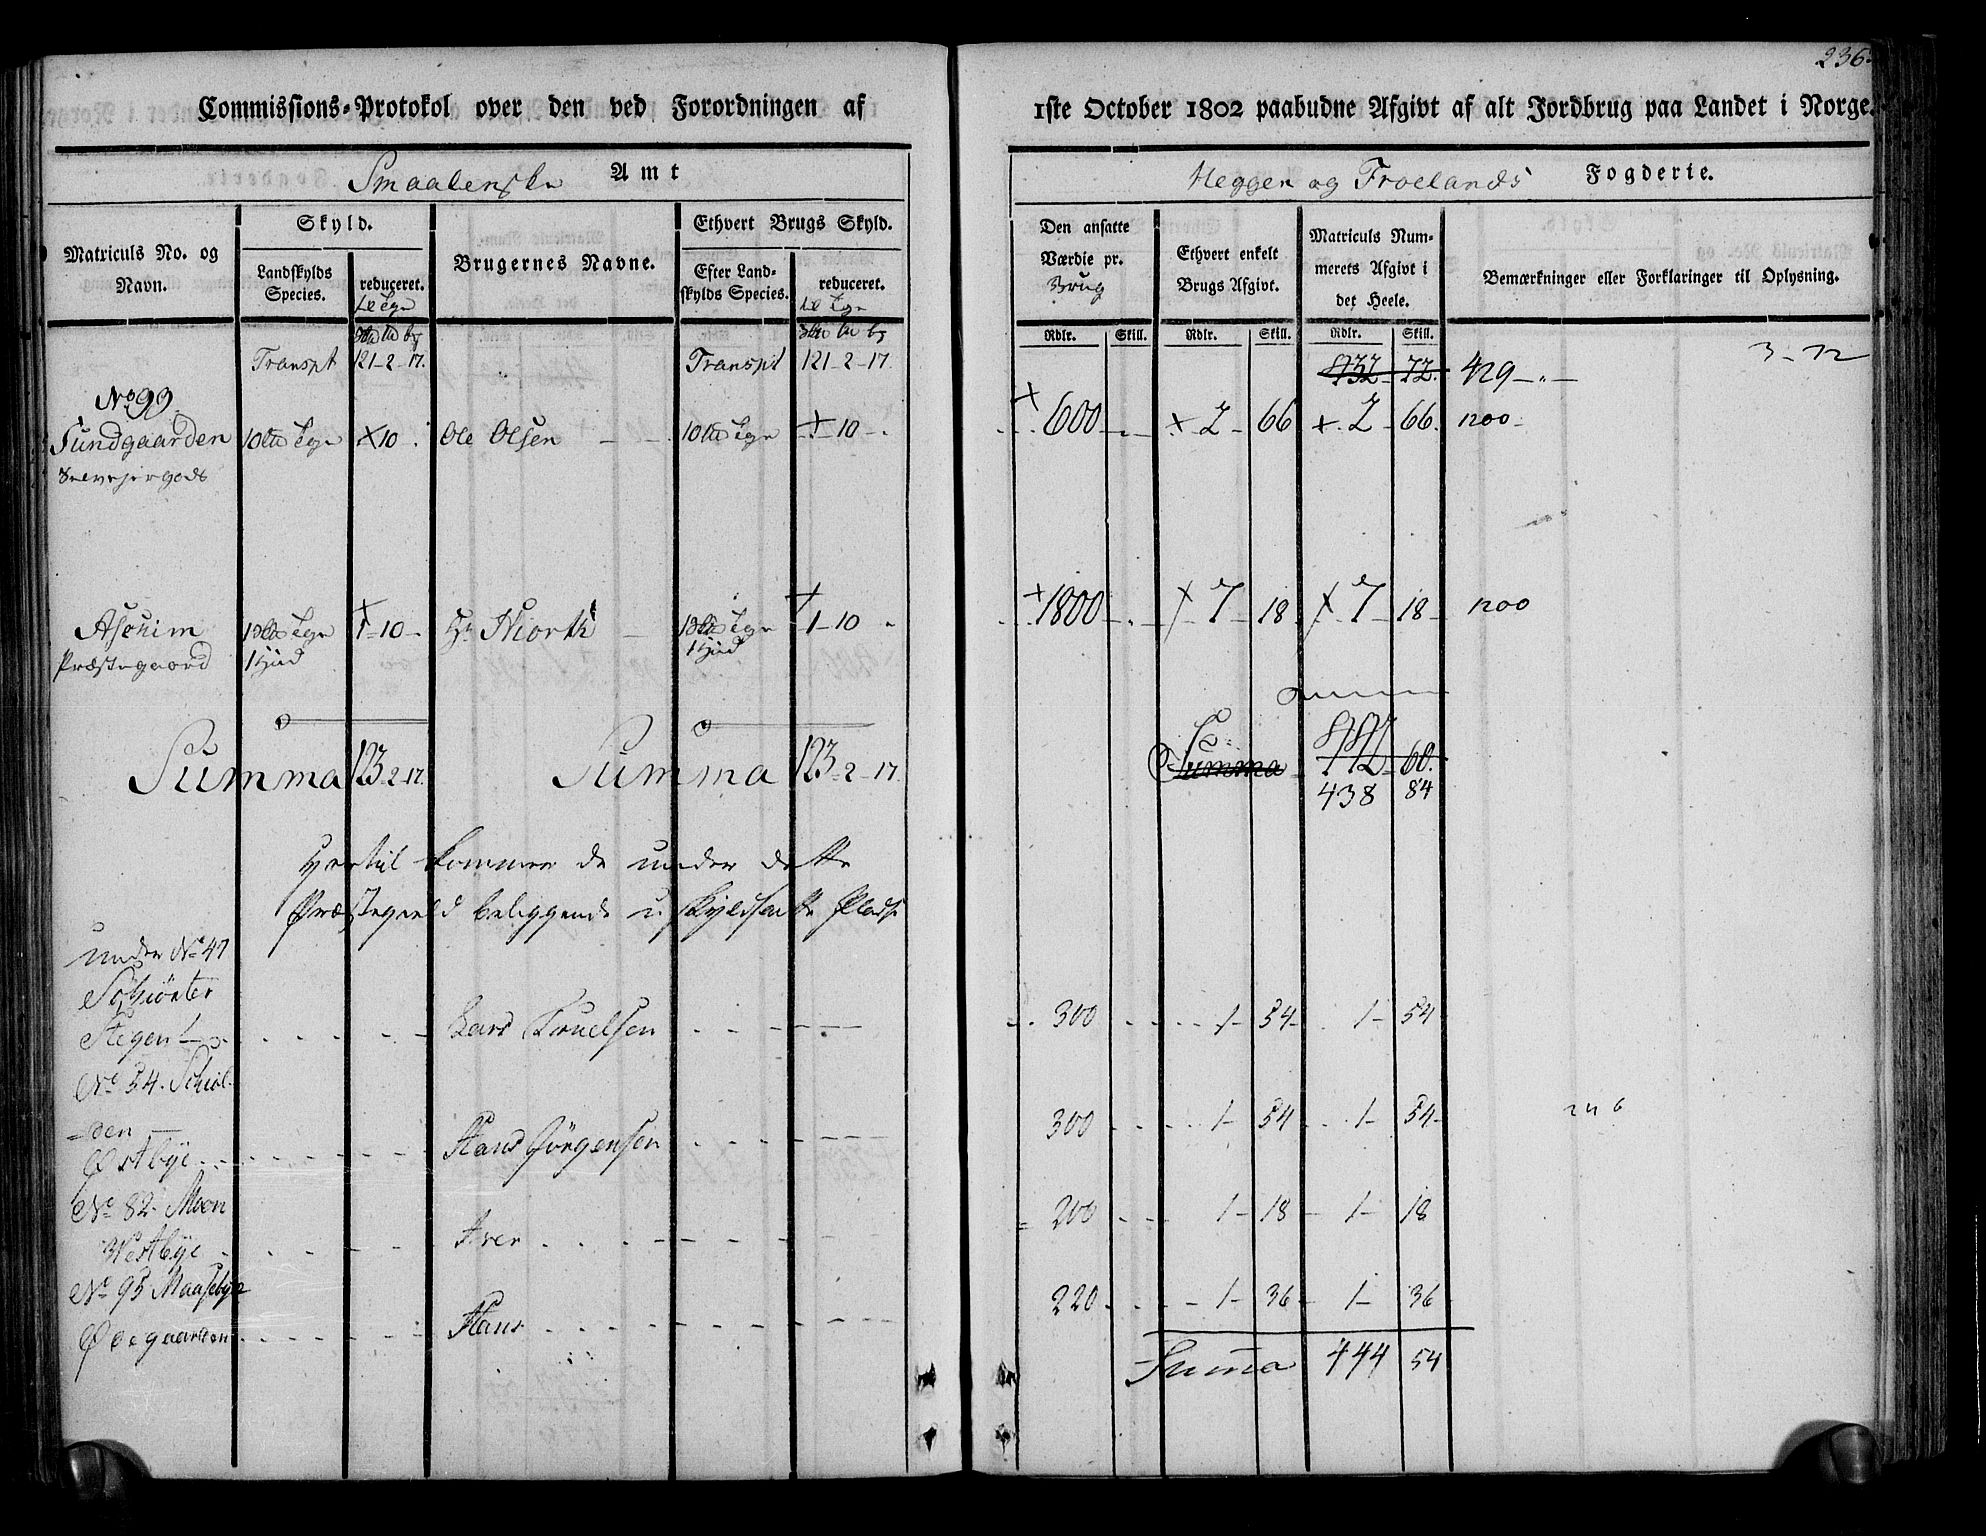 236.
Commissions-Protokol over den ved Forordningen af 1ste October 1802 paabudne Afgivt af alt Jordbrug paa Landet i Norge.
Smaalenske Amt
Heggen og Froelands Fogderie.
Matriculs No. og Navn.
Skyld.
Landskylds Species.
reduceret.
Brugernes Navne.
Ethvert Brugs Skyld.
Efter Landskylds Species.
reduceret.
Den ansatte Værdie pr. Brug
Ethvert enkelt Brugs Afgivt.
Matriculs Nummerets Afgivt i det Heele.
Bemærkninger eller Forklaringer til Oplysning.
Rdlr. Skill. Rdlr. Skill. Rdlr. Skill.
Transpt 121-2-17. Transpt 121-2-17. 932-72. 429-"- 3-72
No 99.
Sundgaarden 10 Lb Tyn + 10. Ole Olsen 10 Lb Tyn + 10 + 600 + 2 66 + 2 66. 1200
Aschim 1 Tyn + 1-10 Hr Niorth 1 Tyn + 1-10 + 1800 + 7 18 + 7 18 1200
Præstegaard 1 Hud 1 Hud
Summa 123-2-17. Summa 123-2-17. Summa 60.
438 84
Hertil kommer de under dette
Præstegield beliggende uskyldsatte Pladse
under No 47
Schiønter
Stegen Lars Truelsen 300 1 54 1 54
No 54. Schiøl-
den
Østbye Hans Jörgensen 300 1 54 1 54
No 82. Moen
Westbye Iver 200 1 18 1 18
No 95 Maasebye
Ødegaarden Hans 220 1 36 1 36
Summa 444 54